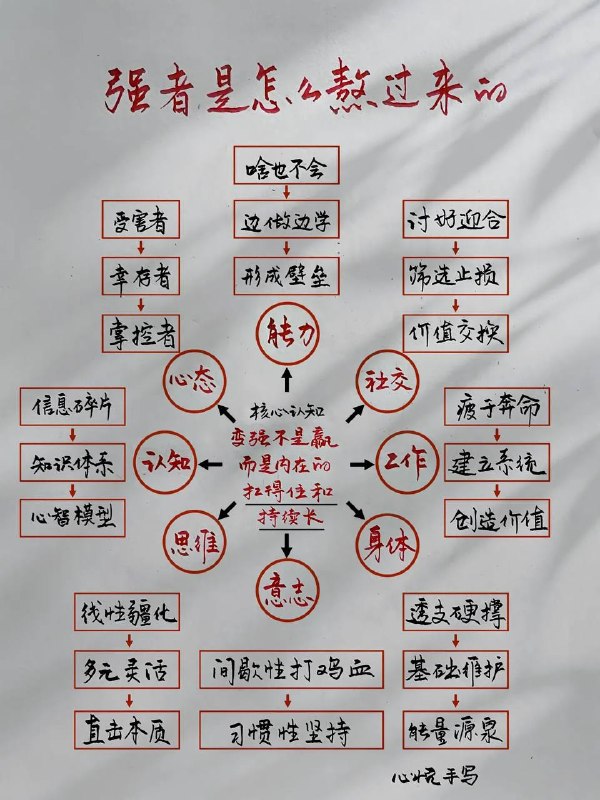 强者是怎么熬过来的
啥也不会
边做边学
形成壁垒
能力
受害者
幸存者
掌控者
心态
讨好迎合
筛选止损
价值交换
社交
信息碎片
知识体系
心智模型
认知
核心认知
变强不是赢
而是内在的
扛得住和
持续长
疲于奔命
建立系统
创造价值
工作
思维
线性疆化
多元灵活
直击本质
意志
间歇性打鸡血
习惯性坚持
身体
透支硬撑
基础维护
能量源泉
心悦手写